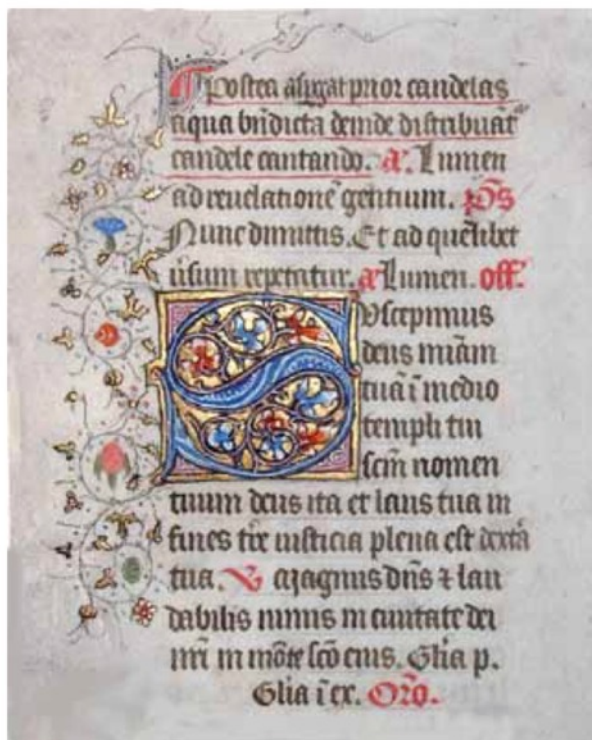 Postea aspergat prior candelas
aqua bn̄dicta deinde distribuāt
candele cantando. a͞. Lumen
ad reuelationē gentium. p̄s
Nunc dimittis. Et ad quēlibet
u̇sum repetatur. a͞ Lumen. off.
Vscepimus
deus miām
tuā ī medio
templi tui
scd̄m nomen
tuum deus ita et laus tua in
fines tr̄e iusticia plena est dext̄a
tua. V̄ Magnus dn̄s ⁊ lau
dabilis nimis in ciuitate dei
nr̄i in mōte sc̄o eius. Gl̄ia p.
Gl̄ia ī ex. Or̄o.